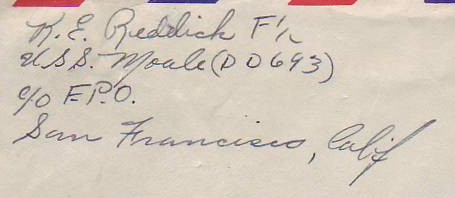 K. E. Reddick F 1/c
U.S.S. Moale (DD693)
c/o F.P.O.
San Francisco, Calif